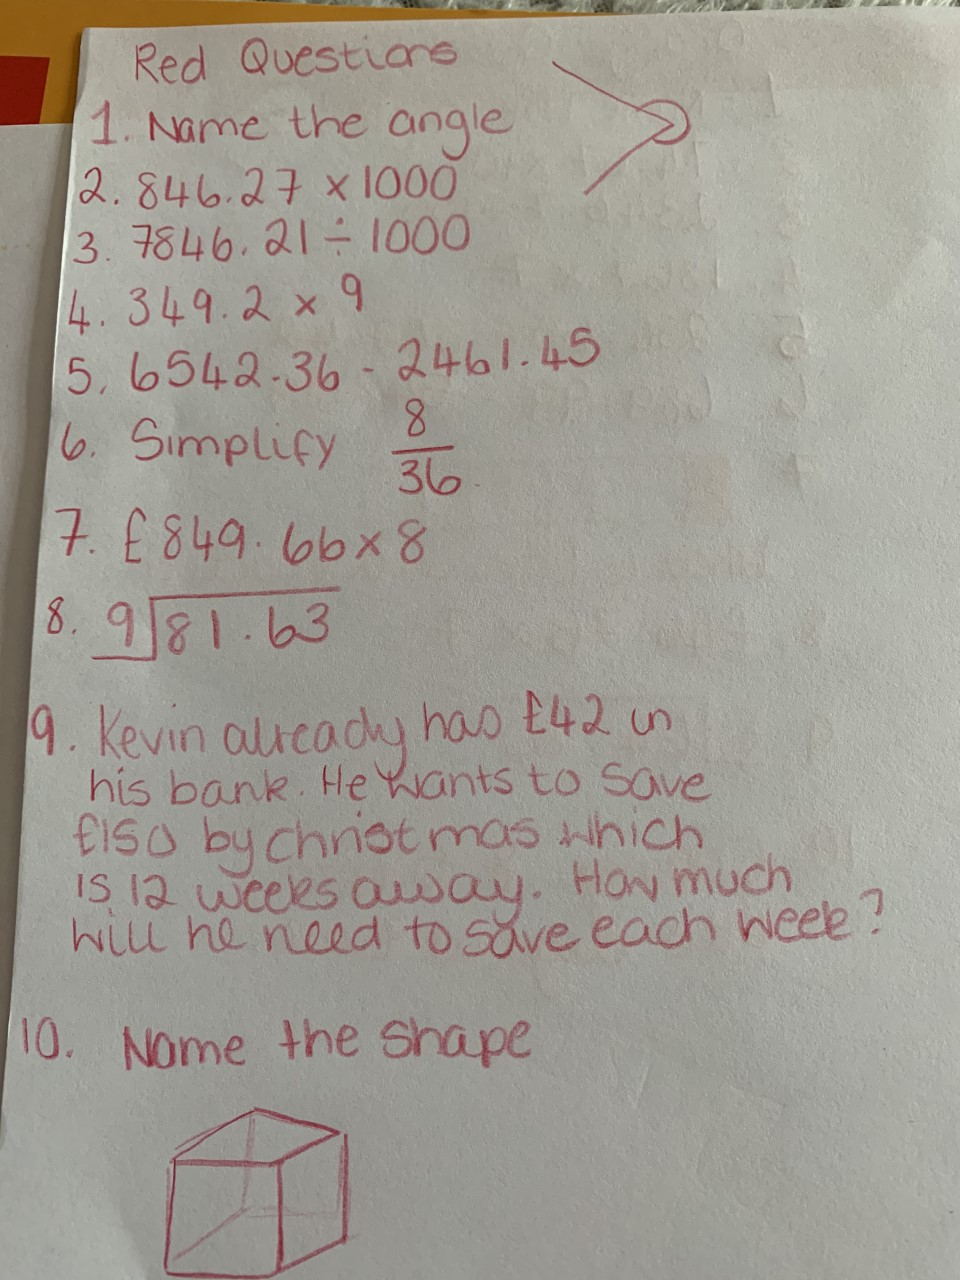 Red Questions
1. Name the angle
2. 846.27 × 1000
3. 7846.21 ÷ 1000
4. 349.2 × 9
5. 6542.36 - 2461.45
6. Simplify 8/36
7. £849.66 × 8
8. 9 81.63
9. Kevin already has £42 in
his bank. He wants to save
£150 by christmas which
is 12 weeks away. How much
will he need to save each week?
10. Name the shape